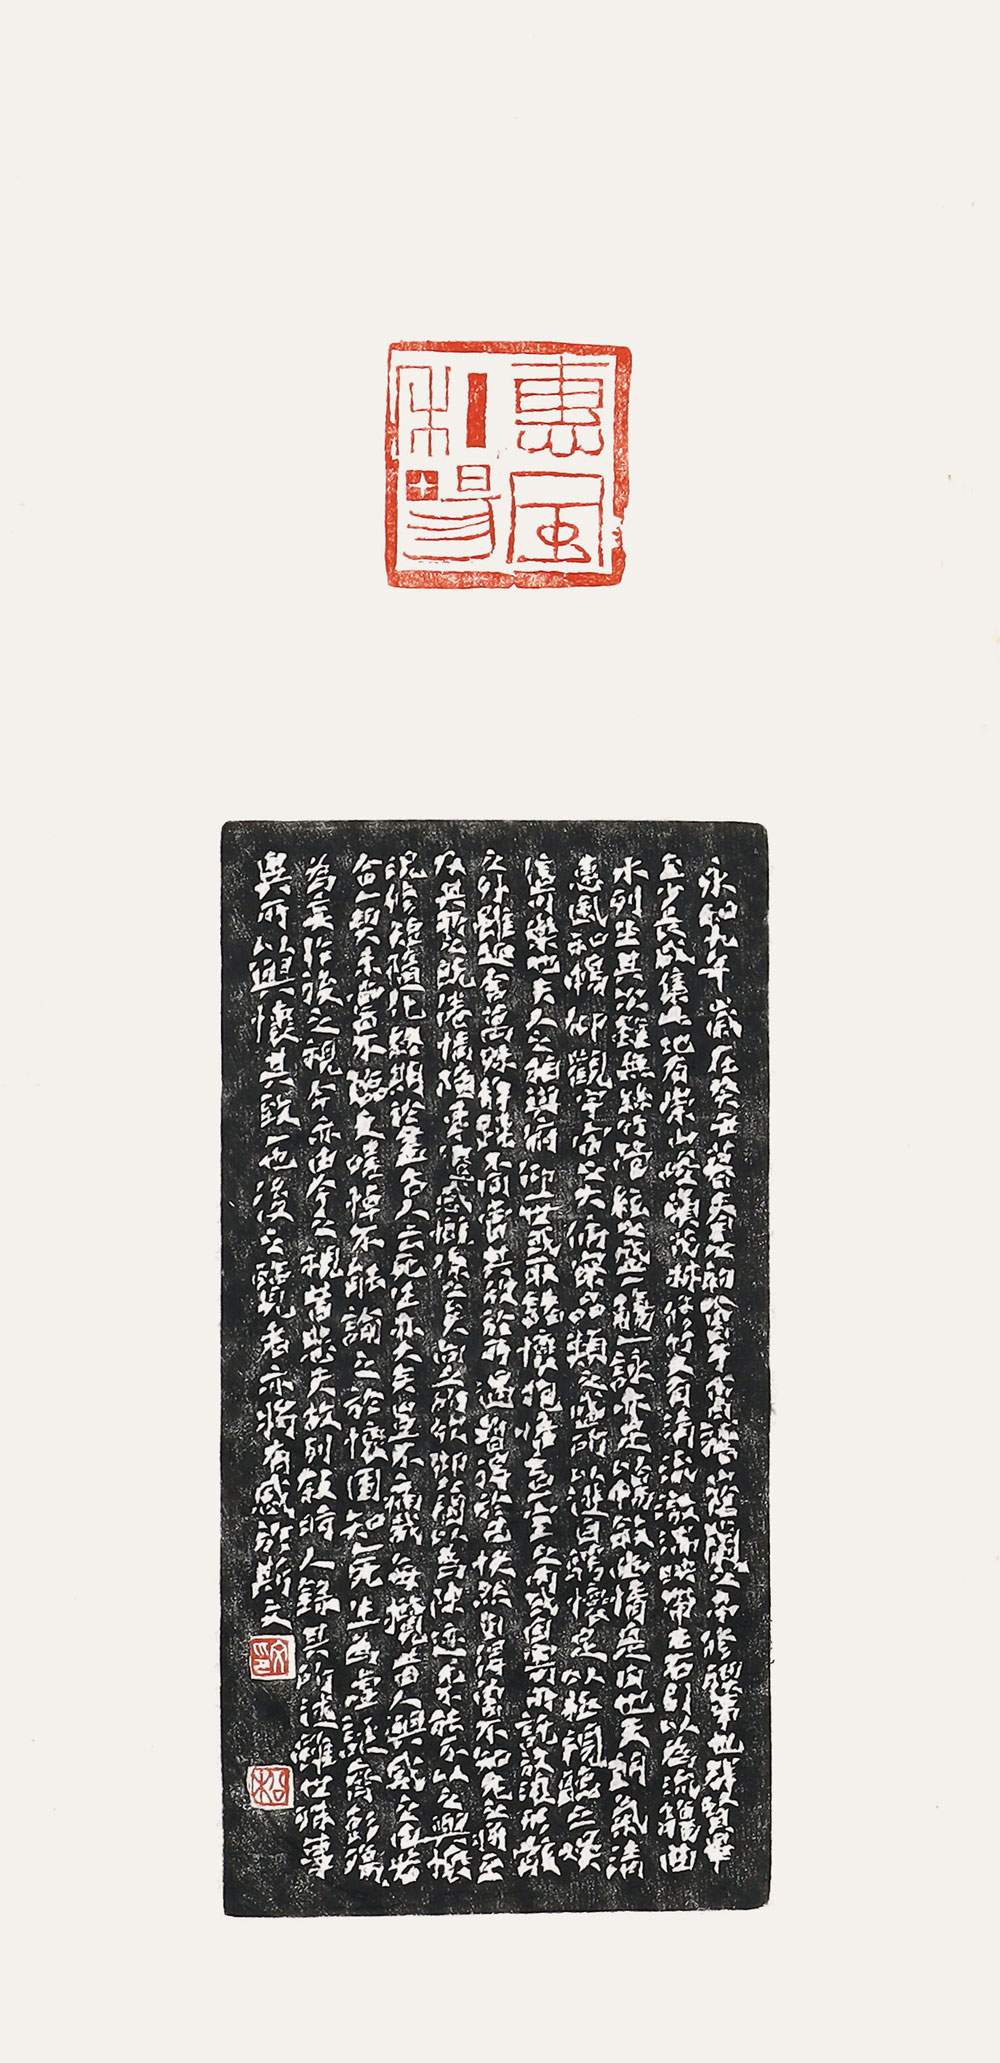 惠風
和暢
永和九年歲在癸丑暮春之初會于會稽山陰之蘭亭修禊事也群賢畢
至少長咸集此地有崇山峻領茂林修竹又有清流激湍映帶左右引以為流觴曲
水列坐其次雖無絲竹管絃之盛一觴一詠亦足以暢敘幽情是日也天朗氣清
惠風和暢仰觀宇宙之大俯察品類之盛所以遊目騁懷足以極視聽之娛
信可樂也夫人之相與俯仰一世或取諸懷抱悟言一室之內或因寄所託放浪形骸
之外雖趣舍萬殊靜躁不同當其欣於所遇暫得於己快然自足曾不知老之將至
及其所之既倦情隨事遷感慨係之矣向之所欣俛仰之間以為陳迹猶不能不以之興懷
況修短隨化終期於盡古人云死生亦大矣豈不痛哉每攬昔人興感之由若
合一契未嘗不臨文嗟悼不能諭之於懷固知一死生為虛誕齊彭殤
為妄作後之視今亦由今之視昔悲夫故列敘時人錄其所述雖世殊事
異所以興懷其致一也後之覽者亦將有感於斯文